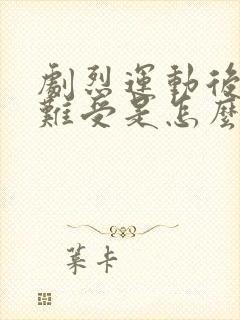 劇烈運動後
難受是怎麼
葉卡